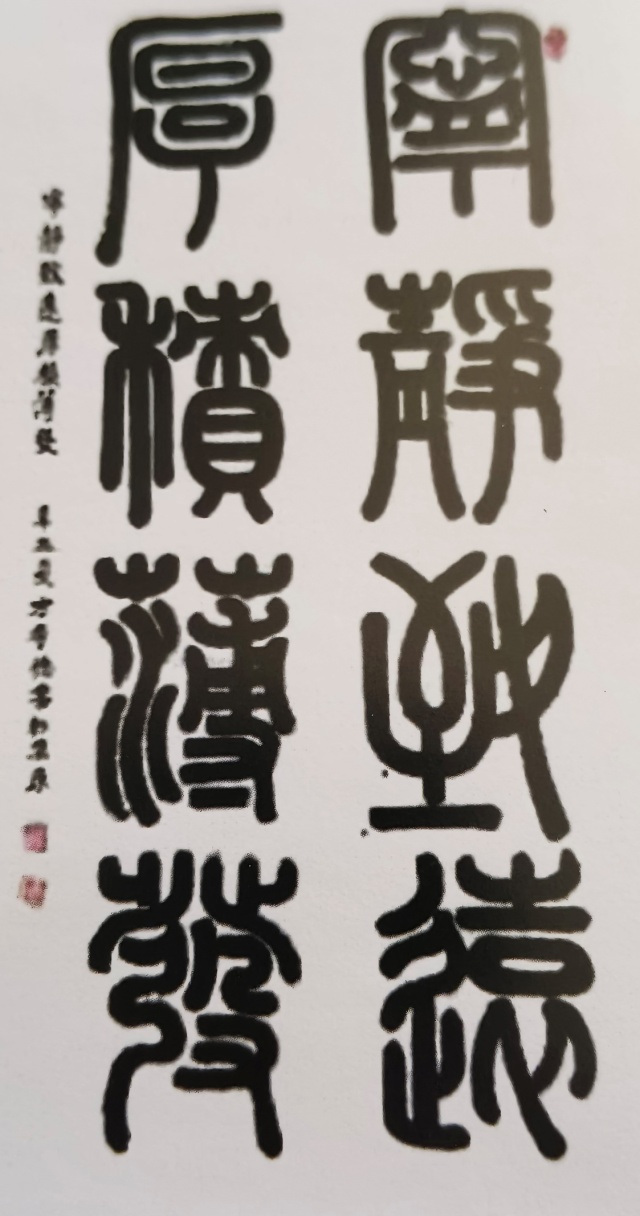 寧靜致遠
厚積薄發
寧靜致遠厚積薄發
辛丑夏